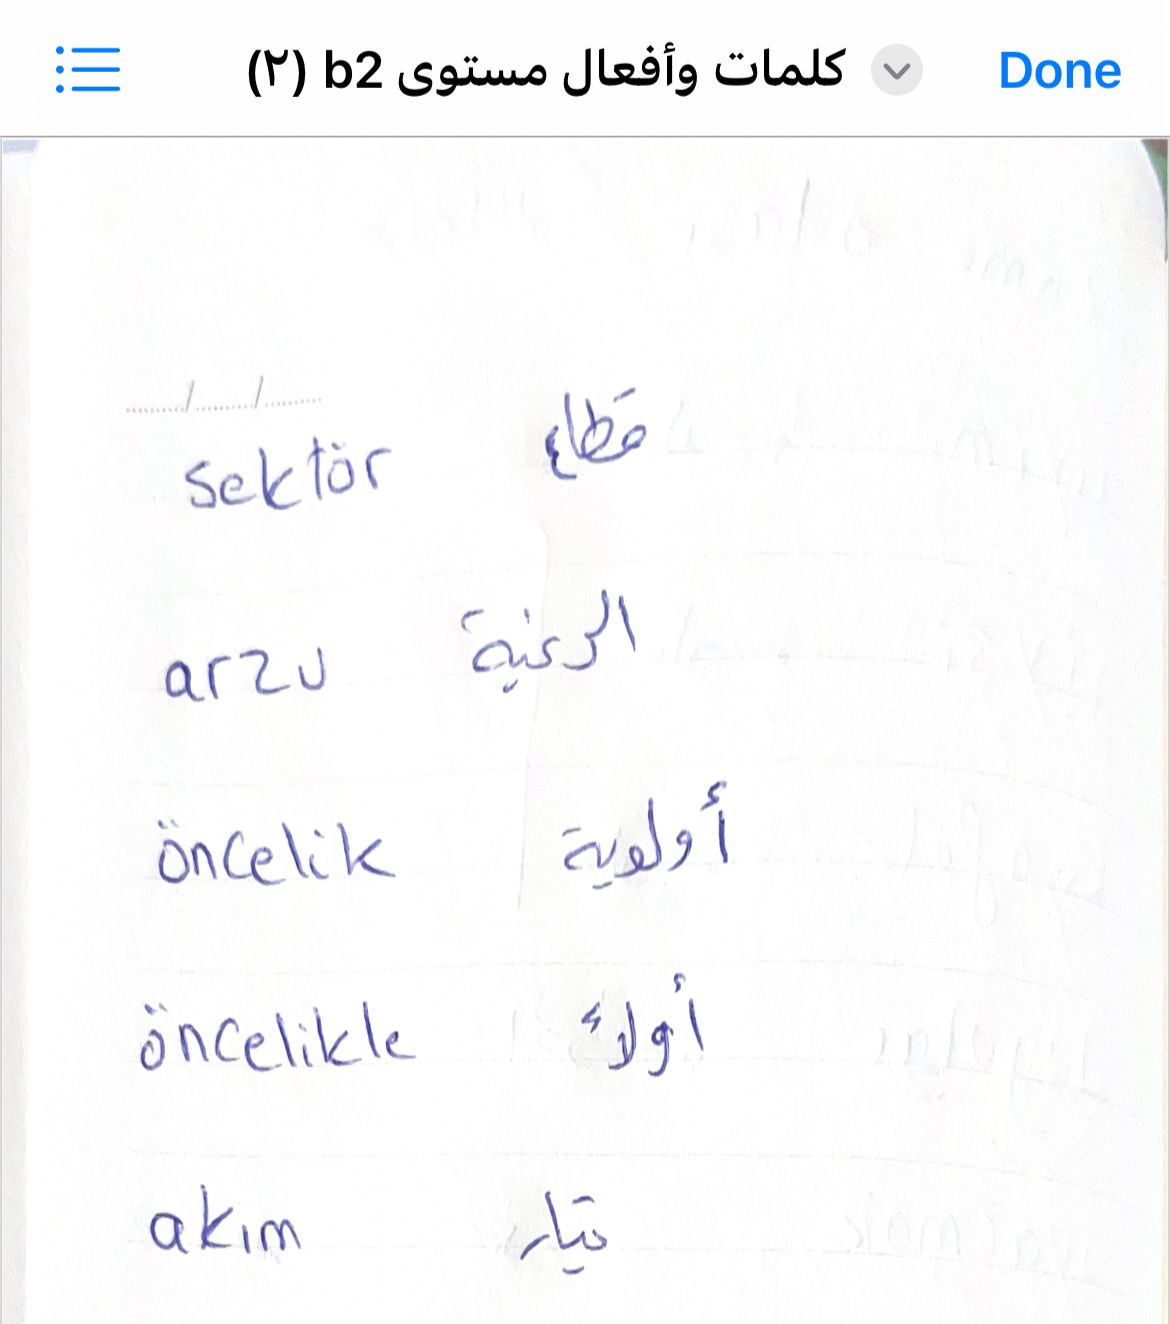 كلمات وأفعال مستوى b2 (٢) Done
sektör قطاع
arzu الرغبة
öncelik أولوية
öncelikle أولاً
akım تيار